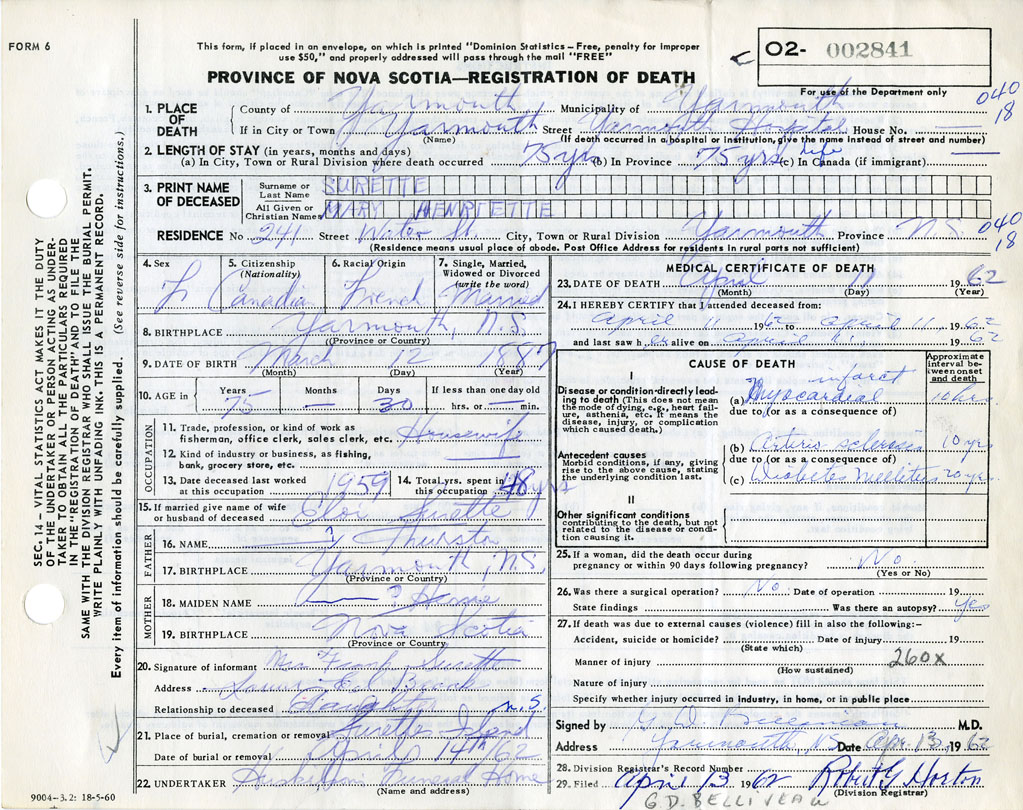 FORM 6
This form, if placed in an envelope, on which is printed "Dominion Statistics – Free, penalty for improper
use $50," and properly addressed will pass through the mail "FREE"
O2- 002841
PROVINCE OF NOVA SCOTIA—REGISTRATION OF DEATH
For use of the Department only
040
18
1. PLACE OF DEATH County of Yarmouth Municipality of Yarmouth
If in City or Town Yarmouth Street Yarmouth Hospital House No. —
(Name) (If death occurred in a hospital or institution, give the name instead of street and number)
2. LENGTH OF STAY (in years, months and days)
(a) In City, Town or Rural Division where death occurred 75 yrs (b) In Province 75 yrs (c) In Canada (if immigrant) life —
3. PRINT NAME OF DECEASED
Surname or Last Name SURETTE
All Given or Christian Names MARY HENRIETTE
RESIDENCE No 241 Street Water St. City, Town or Rural Division Yarmouth Province N.S.
040
18
(Residence means usual place of abode. Post Office Address for residents in rural parts not sufficient)
4. Sex F
5. Citizenship (Nationality) Canadian
6. Racial Origin French
7. Single, Married, Widowed or Divorced (write the word) Married
8. BIRTHPLACE Yarmouth, N.S.
(Province or Country)
9. DATE OF BIRTH March 12 1887
(Month) (Day) (Year)
10. AGE in Years 75 Months — Days 30 If less than one day old hrs. or — min.
OCCUPATION
11. Trade, profession, or kind of work as fisherman, office clerk, sales clerk, etc. Housewife
12. Kind of industry or business, as fishing, bank, grocery store, etc.
13. Date deceased last worked at this occupation 1959
14. Total yrs. spent in this occupation 48 yrs
15. If married give name of wife or husband of deceased Eloi Surette
FATHER
16. NAME ? Thurston
17. BIRTHPLACE Yarmouth, N.S.
(Province or Country)
MOTHER
18. MAIDEN NAME ?
19. BIRTHPLACE Nova Scotia
(Province or Country)
20. Signature of informant Mrs Frank Surette
Address Brook
Relationship to deceased Daughter N.S.
21. Place of burial, cremation or removal Surettes Island
Date of burial or removal April 14th/62
22. UNDERTAKER Funeral Home
(Name and address)
9004–3.2: 18-5-60
MEDICAL CERTIFICATE OF DEATH
23. DATE OF DEATH April 11 1962
(Month) (Day) (Year)
24. I HEREBY CERTIFY that I attended deceased from:
April 11 1962 to April 11 1962
and last saw her alive on April 11 1962
CAUSE OF DEATH
Approximate interval between onset and death
I
Disease or condition directly leading to death (This does not mean the mode of dying, e.g., heart failure, asthenia, etc. It means the disease, injury, or complication which caused death.)
(a) Myocardial infarct 10 hrs.
due to (or as a consequence of)
Antecedent causes
Morbid conditions, if any, giving rise to the above cause, stating the underlying condition last.
(b) sclerosis 10 yrs
due to (or as a consequence of)
(c) Diabetes Mellitus 20 yrs
II
Other significant conditions
contributing to the death, but not related to the disease or condition causing it.
25. If a woman, did the death occur during pregnancy or within 90 days following pregnancy? No
(Yes or No)
26. Was there a surgical operation? No Date of operation 19
State findings Was there an autopsy? Yes
27. If death was due to external causes (violence) fill in also the following:–
Accident, suicide or homicide? Date of injury 19
(State which)
Manner of injury 260X
(How sustained)
Nature of injury
Specify whether injury occurred in industry, in home, or in public place
Signed by G. D. Belliveau M.D.
Address Yarmouth NS Date Apr. 13, 1962
28. Division Registrar's Record Number
29. Filed April 13 1962 Robert G Horton
(Division Registrar)
G.D. BELLIVEAU
SEC. 14 – VITAL STATISTICS ACT MAKES IT THE DUTY
OF THE UNDERTAKER OR PERSON ACTING AS UNDER-
TAKER TO OBTAIN ALL THE PARTICULARS REQUIRED
IN THE "REGISTRATION OF DEATH" AND TO FILE THE
SAME WITH THE DIVISION REGISTRAR WHO SHALL ISSUE THE BURIAL PERMIT.
WRITE PLAINLY WITH UNFADING INK. THIS IS A PERMANENT RECORD.
Every item of information should be carefully supplied. (See reverse side for instructions.)